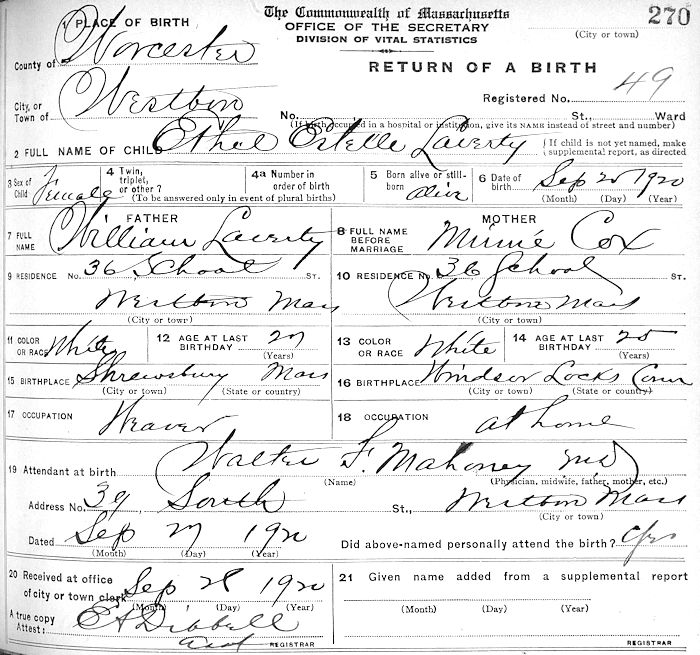 The Commonwealth of Massachusetts
270
1 PLACE OF BIRTH
OFFICE OF THE SECRETARY
(City or town)
DIVISION OF VITAL STATISTICS
County of Worcester
RETURN OF A BIRTH
City, or
Town of Westboro
Registered No. 49
No. St., Ward
(If birth occurred in a hospital or institution, give its NAME instead of street and number)
2 FULL NAME OF CHILD Ethel Estelle Laverty
{If child is not yet named, make
supplemental report, as directed
3 Sex of Child Female
4 Twin, triplet, or other?
4a Number in order of birth
(To be answered only in event of plural births)
5 Born alive or still-born alive
6 Date of birth Sep 1920
(Month) (Day) (Year)
FATHER
MOTHER
7 FULL NAME William Laverty
8 FULL NAME BEFORE MARRIAGE Minnie Cox
9 RESIDENCE No. 36 School ST.
10 RESIDENCE No. 36 School ST.
Westboro Mass
Westboro Mass
(City or town)
(City or town)
11 COLOR OR RACE White
12 AGE AT LAST BIRTHDAY 27
(Years)
13 COLOR OR RACE White
14 AGE AT LAST BIRTHDAY 25
(Years)
15 BIRTHPLACE Shrewsbury Mass
(City or town) (State or country)
16 BIRTHPLACE Windsor Locks Conn
(City or town) (State or country)
17 OCCUPATION Weaver
18 OCCUPATION at home
19 Attendant at birth Walter F. Mahoney MD
(Name) (Physician, midwife, father, mother, etc.)
Address No. 39 South St., Westboro Mass
(City or town)
Dated Sep 27 1920
(Month) (Day) (Year)
Did above-named personally attend the birth? Yes
20 Received at office of city or town clerk Sep 28 1920
(Month) (Day) (Year)
21 Given name added from a supplemental report
(Month) (Day) (Year)
A true copy
Attest:
REGISTRAR
REGISTRAR